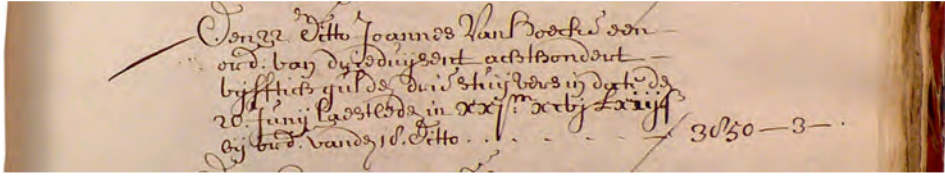 Den 22en ditto Joannes Van Boecke een
ord. van dryeduijsent achthondert
vijfftich gulde drie stuijvers in date de
20 Junij laestlede in xxjm xcvj £ xiijs
bij ord. vande 18. ditto . . . . . . 3850 — 3 — .